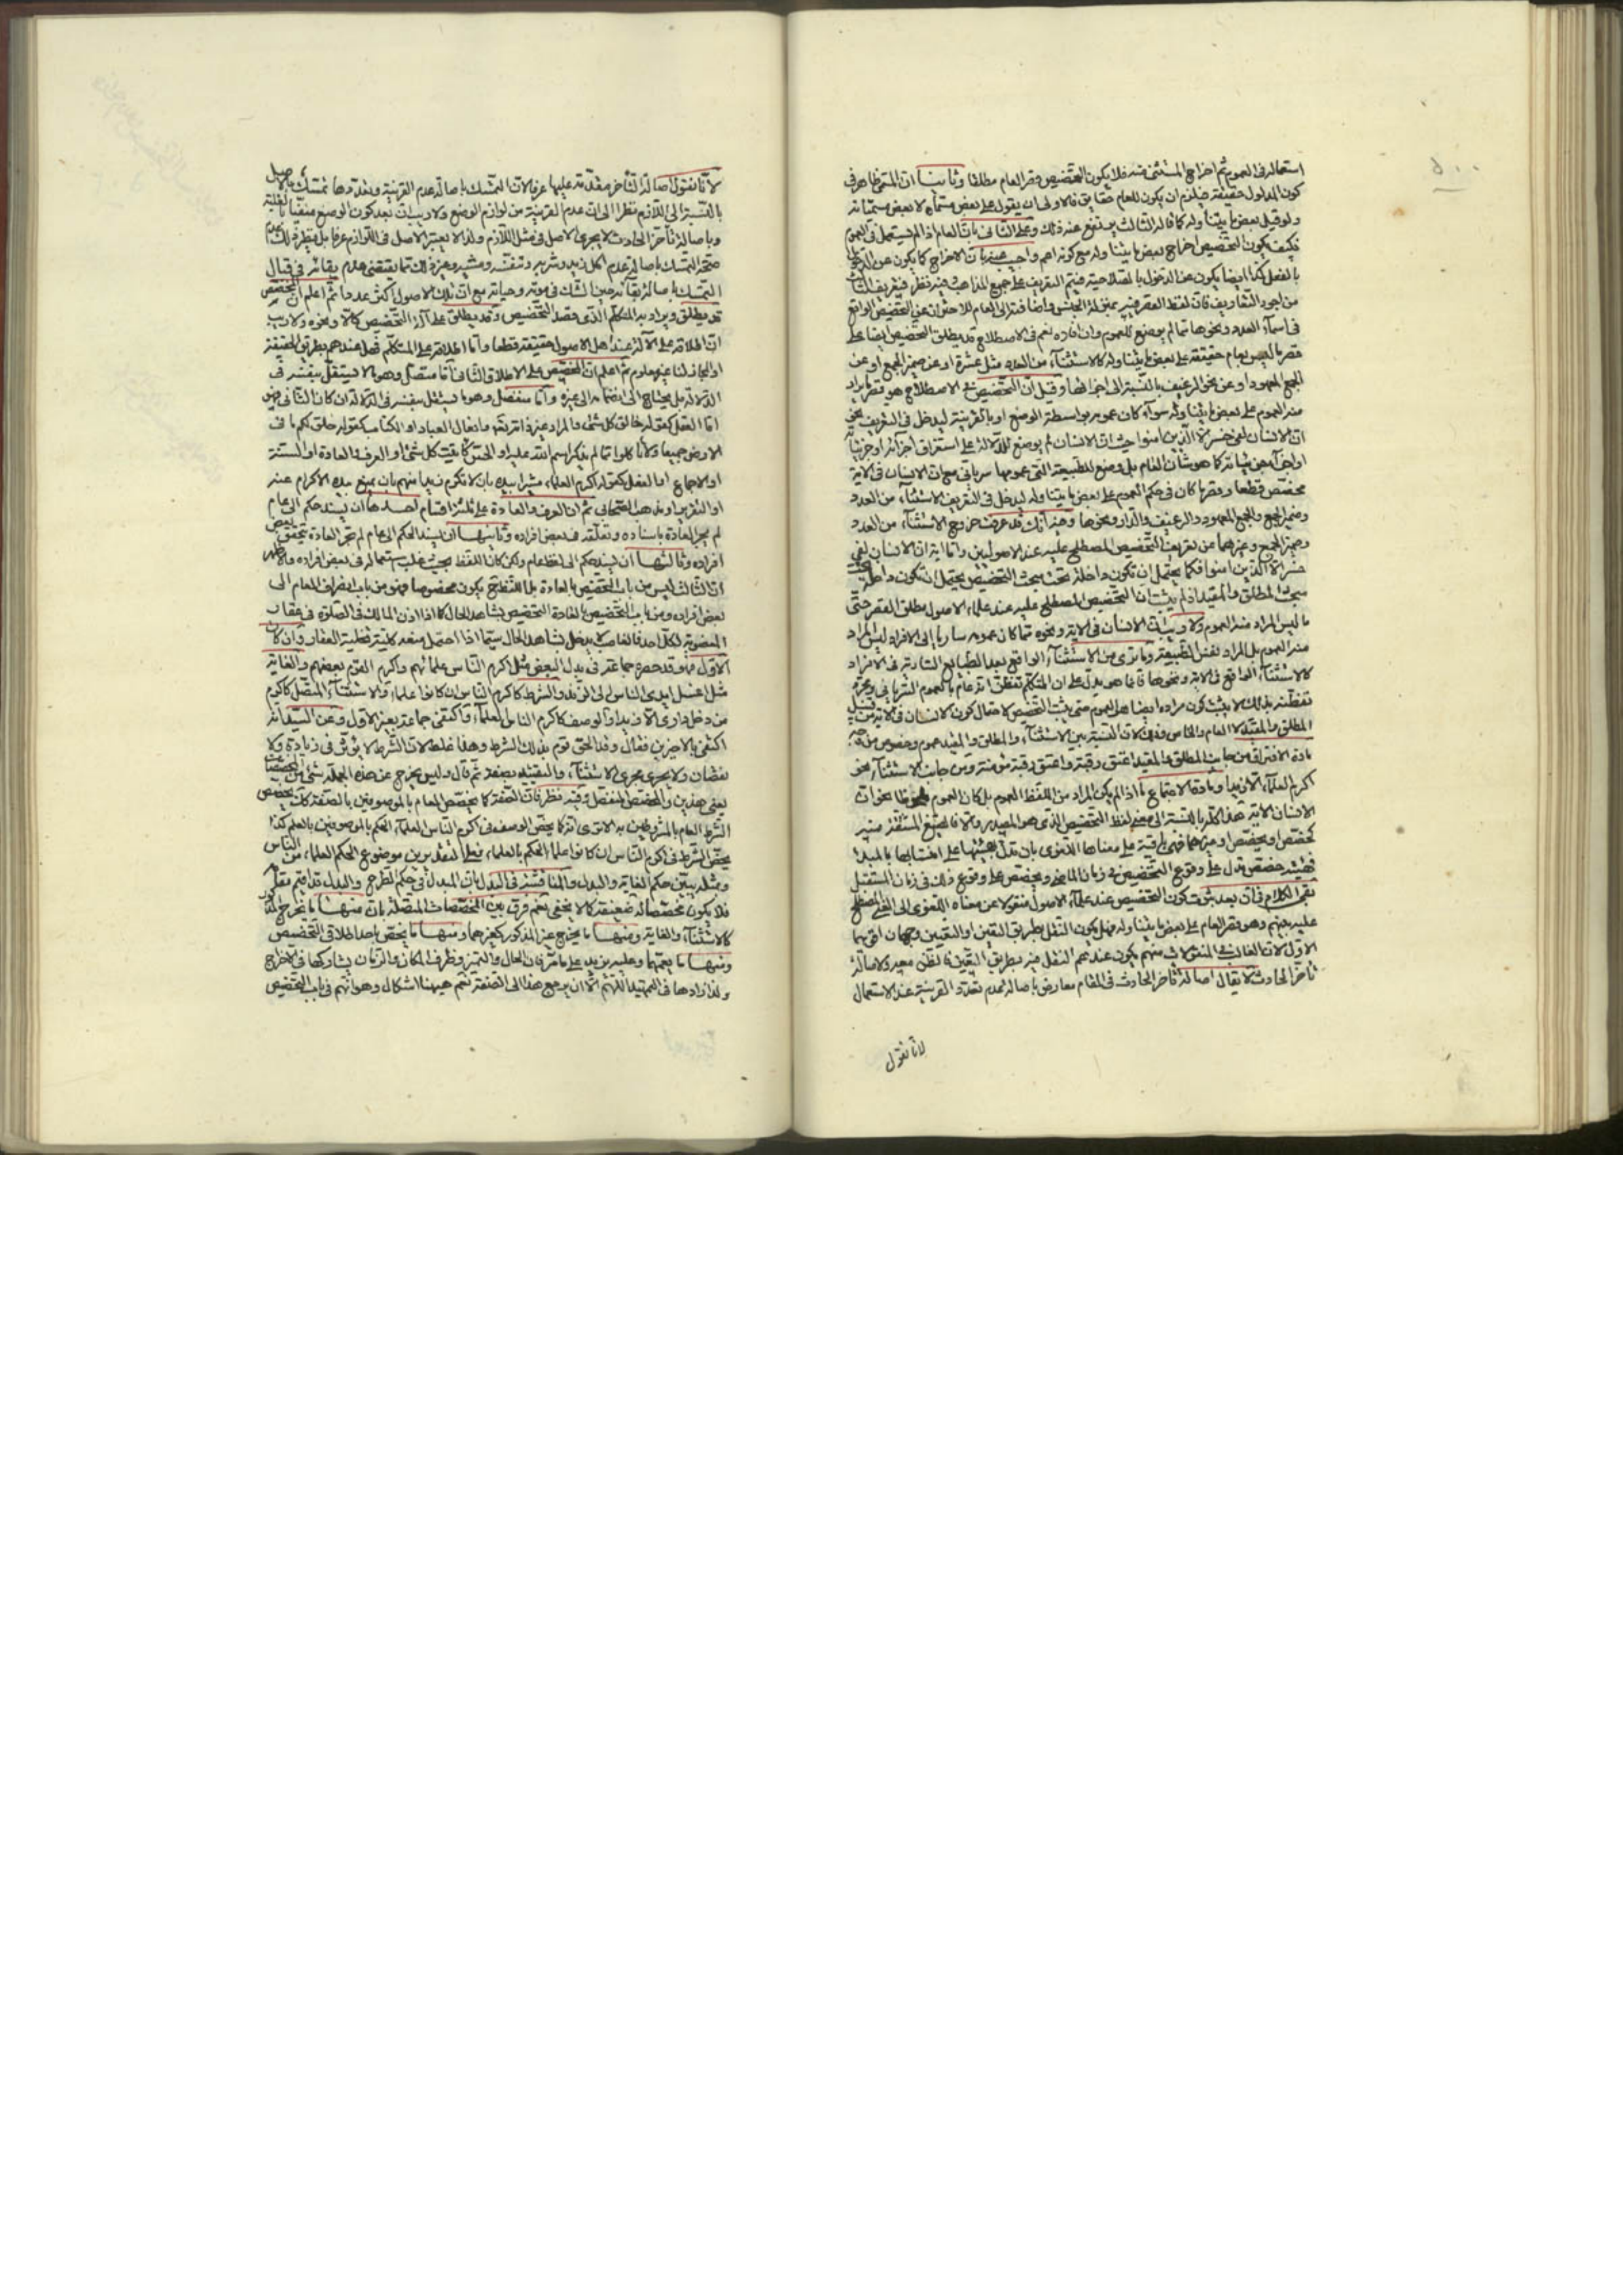 استعماله فى العموم ثم اخراج المستثنى منه فلا يكون التخصيص قصر العام مطلقا وثانيا ان المسمى ظاهر فى
كون المدلول حقيقة فيلزم ان يكون للعام حقايق فالاولى ان يقول على بعض مسماه لا بعض مسمياته
ولو قيل بعض ما يتناوله كما قاله الثالث يندفع عنه ذلك وعلى الثانى بان العام اذا لم يستعمل فى العموم
فكيف يكون التخصيص اخراج بعض ما يتناوله مع كونه اعم واجيب عنه بان الاخراج كما يكون عن الدخول
بالفعل كذا ايضا يكون عن الدخول بالصلاحية فيتم التعريف على جميع المذاهب وفيه نظر فتعريف الثالث
من اجود التعاريف فان لفظ القصر فيه بمنزلة الجنس واضافته الى العام للاحتراز عن التخصيص الواقع
فى اسماء العدد ونحوها مما لم يوضع للعموم وان افاده نعم فى الاصطلاح قد يطلق التخصيص ايضا على
قصر ما ليس بعام حقيقة على بعض ما يتناوله كالاستثناء من العدد مثل عشرة او عن ضمير الجمع او عن
الجمع المعهود او عن نحو الرغيف بالنسبة الى اجزائها وقيل ان التخصيص فى الاصطلاح هو قصر ما يراد
منه العموم على بعض ما يتناوله سواء كان عمومه بواسطة الوضع او بالقرينة ليدخل فى التعريف نحو
ان الانسان لفى خسر الا الذين امنوا حيث ان الانسان لم يوضع للدلالة على استغراق اجزائه او جزئياته
كما هو شان العام بل وضع للطبيعة التى عمومها سريانى مع ان الانسان فى الاية
مخصص قطعا وقصر ما كان فى حكم العموم على بعض ما يتناوله ليدخل فى التعريف الاستثناء من العدد
وضمير الجمع والجمع المعهود والرغيف والدار ونحوها وفيه انك قد عرفت خروج الاستثناء من العدد
وضمير الجمع وغيرهما عن تعريف التخصيص المصطلح عليه عند الاصوليين واما اية ان الانسان لفى
خسر الا الذين امنوا فكما يحتمل ان تكون داخلة تحت مبحث التخصيص يحتمل ان تكون داخلة تحت
مبحث المطلق والمقيد اذ لم يثبت ان التخصيص المصطلح عليه عند علماء الاصول مطلق القصر حتى
ما ليس المراد منه العموم ولا ريب ان الانسان فى الاية ونحوه مما كان عمومه ساريا الى الافراد ليس المراد
منه العموم بل المراد نفس الطبيعة وما ترى من الاستثناء الواقع بعد الطبايع السارية فى الافراد
كالاستثناء الواقع فى الاية ونحوها فانما هو يدل على ان المتكلم تفطن انه عام بالعموم السريانى وبمجرد
تفطنه بذلك لا يثبت كون مراده ايضا هو العموم حتى يثبت التخصيص لاحتمال كون الانسان فى الاية من قبيل
المطلق والمقيد لا العام والخاص لان النسبة بين الاستثناء والمطلق والمقيد عموم وخصوص من وجه
مادة الافتراق من جانب المطلق والمقيد اعتق رقبة واعتق رقبة مؤمنة ومن جانب الاستثناء نحو
اكرم العلماء الا زيدا ومادة الاجتماع ما اذا لم يكن المراد من اللفظ العموم بل كان العموم ملحوظا نحو ان
الانسان الاية هذا كله بالنسبة الى معنى لفظ التخصيص الذى هو المصدر والا فالصيغ المشتقة منه
كخصص او يخصص او غيرهما فهى باقية على معناها اللغوى بان تدل بهيئتها على انتسابها بالمبدا
فهيئة خصص تدل على وقوع التخصيص فى زمان الماضى ويخصص على وقوع ذلك فى زمان المستقبل
بقى الكلام فى ان بعد ثبوت كون التخصيص عند علماء الاصول منقولا عن معناه اللغوى الى المعنى المصطلح
عليه بينهم وهو قصر العام على بعض ما يتناوله فهل يكون النقل بطريق التعين او التعيين وجهان اقويهما
الاول لان الغالب فى المنقولات منهم يكون عندهم النقل فيه بطريق التعين فالظن معه ولاصالة
تاخر الحادث لا يقال اصالة تاخر الحادث فى المقام معارض باصالة عدم تعدد القرينة عند الاستعمال
لانا نقول
لانا نقول اصالة التاخر مقدمة عليها عرفا لان التمسك باصالة عدم القرينة وتعددها تمسك بالاصل
بالنسبة الى اللازم نظرا الى ان عدم القرينة من لوازم الوضع ولا ريب ان بعد كون الوضع منفيا
وباصالة تاخر الحادث لا يجرى الاصل فى مثل اللازم ولذا لا يعتبر الاصل فى اللوازم عرفا
صحة التمسك باصالة عدم اكل زيد وشربه وتنفسه ومشيه وغير ذلك مما يقتضى عدم بقائه فى قبال
التمسك باصالة بقائه حين الشك فى موته وحياته مع ان تلك الاصول اكثر عددا ثم اعلم ان المخصص
قد يطلق ويراد به المتكلم الذى قصد التخصيص وقد يطلق على آلة التخصيص كالا ونحوه ولا ريب
ان اطلاقه على الآلة عند اهل الاصول حقيقة قطعا واما اطلاقه على المتكلم فهل عندهم بطريق الحقيقة
او المجاز لنا غير معلوم ثم اعلم ان المخصص على الاطلاق الثانى اما متصل وهو ما لا يستقل بنفسه فى
الدلالة بل يحتاج الى انضمامه الى غيره واما منفصل وهو ما يستقل بنفسه فى الدلالة
اما العقل كقوله خالق كل شئ والمراد غير ذاته وافعال العباد او الكتاب كقوله خلق لكم ما فى
الارض جميعا ولا تاكلوا مما لم يذكر اسم الله عليه او الحس كاوتيت كل شئ او العرف والعادة او السنة
او الاجماع او الفعل كقوله اكرم العلماء مشيرا بيده بان لا تكرم زيدا منهم بان يمنع بيده الاكرام عنه
او التقرير او مذهب الصحابى ثم ان العرف والعادة على ثلثة اقسام احدها ان يسند حكم الى عام
لم يجر العادة باسناده وتعلقه فى بعض افراده وثانيها ان يسند الحكم الى عام لم تجر العادة بتحقق بعض
افراده وثالثها ان يسند حكم الى لفظ عام ولكن كان اللفظ بحيث غلب استعماله فى بعض افراده والظاهر
ان الثالث ليس من باب التخصيص بالعادة بل اللفظ ح يكون مخصوصا فهو من باب انصراف العام الى
بعض افراده ومن باب التخصيص بالعادة التخصيص بشاهد الحال كما اذا اذن المالك فى الصلوة فى عقاره
المغصوبة لكل احد فالغاصب لا يدخل بشاهد الحال سيما اذا احتمل منعه كلية تخلية العقار وان كان
الاول فهو قد حصره جماعة فى بدل البعض مثل اكرم الناس علمائهم واكرم القوم بعضهم والغاية
مثل اغسل ايدى الناس الى الزند والشرط كاكرم الناس ان كانوا علماء والاستثناء المتصل كاكرم
من دخل دارى الا زيدا والوصف كاكرم الناس العلماء واكتفى جماعة بغير الاول وعن السيد انه
اكتفى بالاخيرين فقال وقد الحق قوم بذلك الشرط وهذا غلط لان الشرط لا يؤثر فى زيادة ولا
نقصان ولا يجرى مجرى الاستثناء والتقييد بصفة ثم قال وليس يخرج عن هذه الجملة شئ من المخصصات
يعنى هذين والمخصص المنفصل وفيه نظر فان الصفة كما يخصص العام بالموصوفين بالصفة كذلك يخصص
الشرط العام بالمشروطين به الا ترى انه كما يخص الوصف فى اكرم الناس العلماء الحكم بالموصوفين بالعلم كذا
يخص الشرط فى اكرم الناس ان كانوا علماء الحكم بالعلماء
ومثله يبين حكم الغاية والبدل والمناقشة فى البدل بان المبدل فى حكم الطرح والبدل قد اقيم مقامه
فلا يكون مخصصا له ضعيفة كما لا يخفى نعم فرق بين المخصصات المتصلة بان منها ما يخرج المذكور
كالاستثناء والغاية ومنها ما يخرج غير المذكور كغيرهما ومنها ما يختص باحد اطلاقى التخصيص
ومنها ما يعمهما وعليه يزيد على ما مر فان الحال والتميز وظرف المكان والزمان يشاركها فى الاخراج
ولذا زادها فى التمهيد اللهم الا ان يرجع هذا الى الصفة نعم هيهنا اشكال وهو انهم فى باب التخصيص